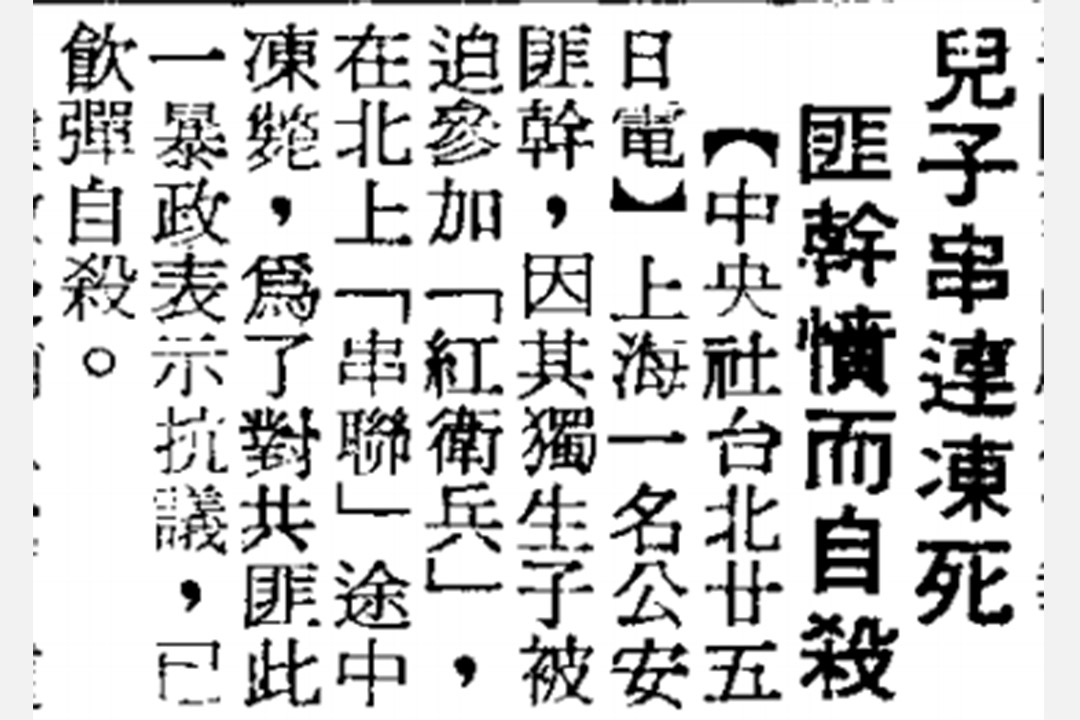 兒子串連凍死
匪幹憤而自殺
【中央社台北廿五
日電】上海一名公安
匪幹，因其獨生子被
迫參加「紅衛兵」，
在北上「串聯」途中
凍斃，爲了對共匪此
一暴政表示抗議，已
飲彈自殺。